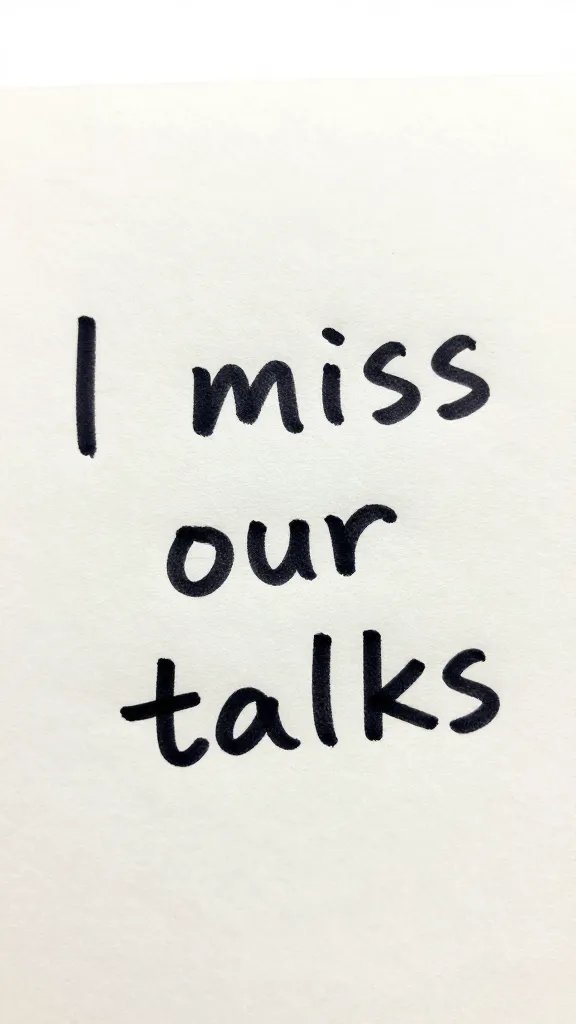 I miss
our
talks